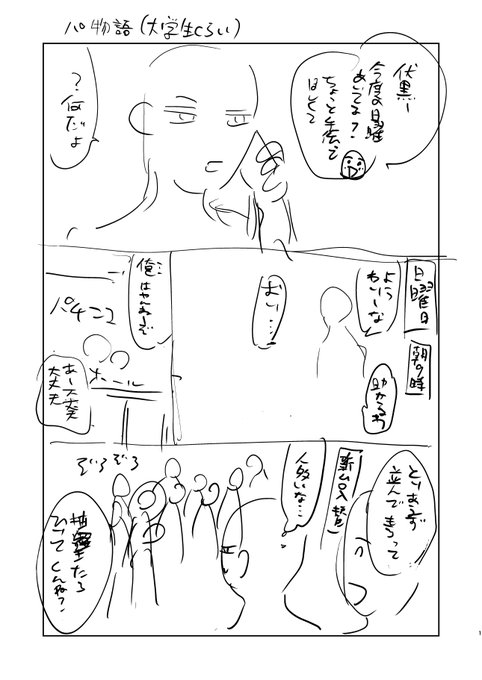 パ物語(大学生くらい)
伏黒ー
今度の日曜
あいてる?
ちょっと手伝って
ほしくて
?何だよ
日曜日
朝9時
よっ
わりーな
助かるわ
おい…
俺はやんねーぞ
パチンコ
ホール
あー大丈夫
大丈夫
とりあえず
並んで
新台入替
人多いな…
ぞろぞろ
抽選
ひいて
くんね?
1